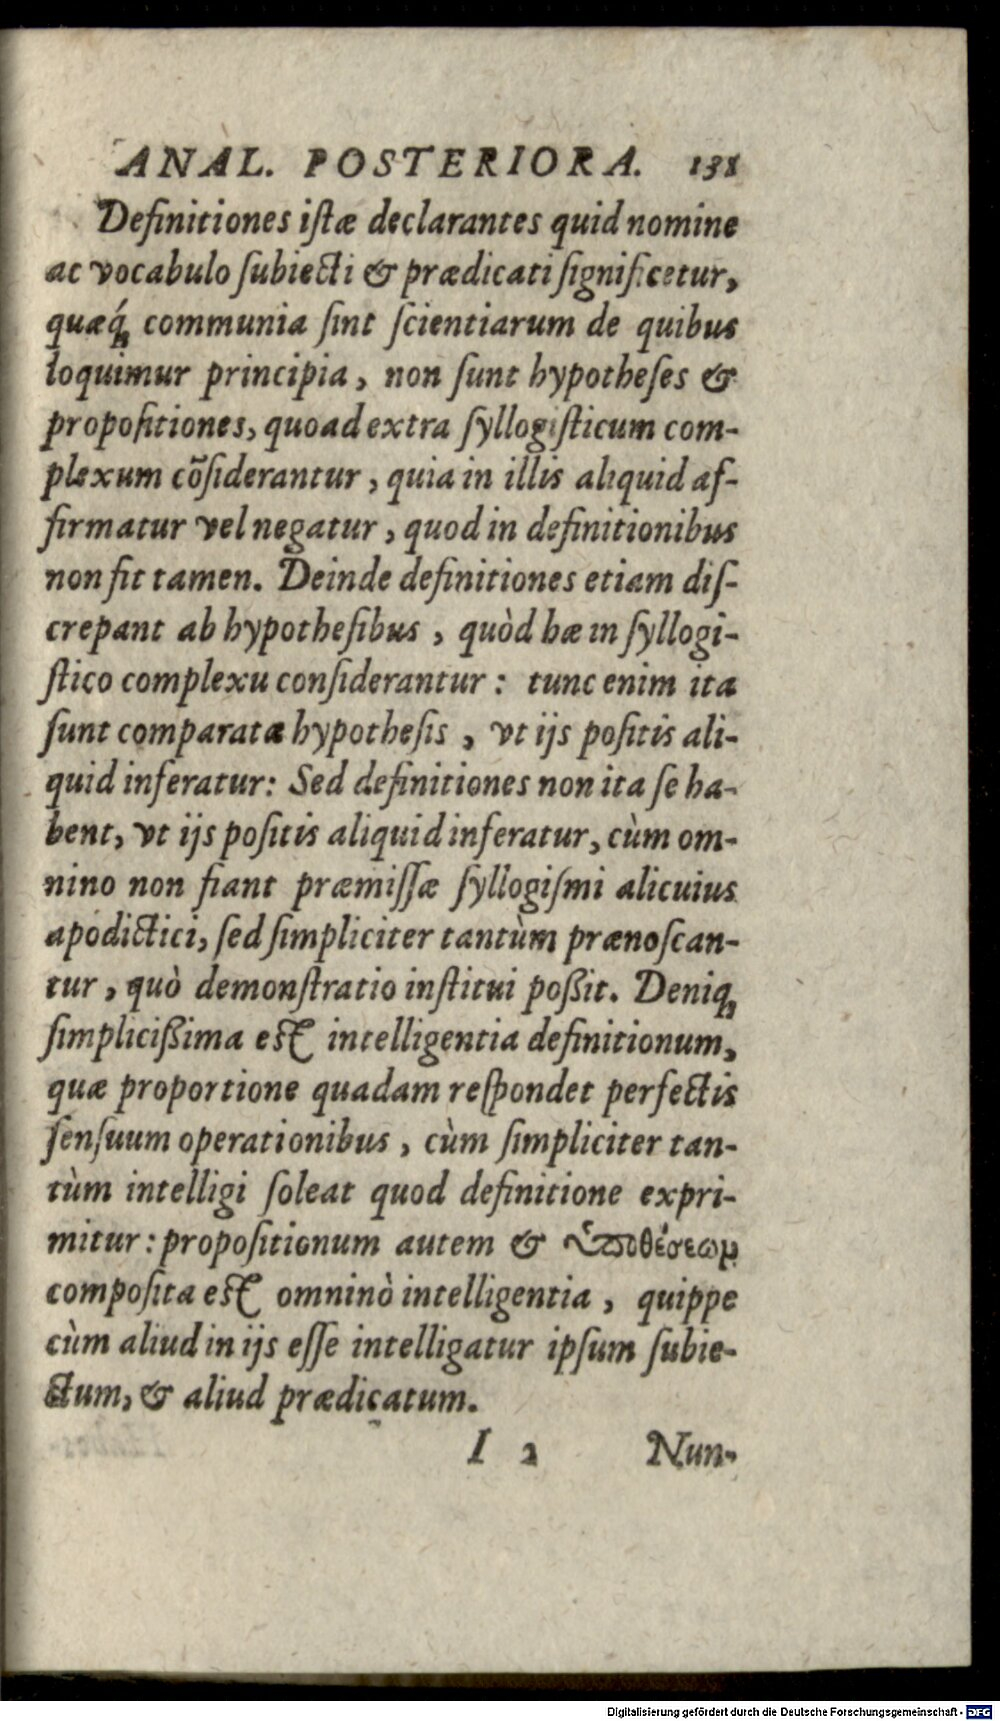 ANAL. POSTERIORA. 131
Definitiones iſtæ declarantes quid nomine
ac vocabulo ſubiecti & prædicati ſignificetur,
quæq́; communia ſint ſcientiarum de quibus
loquimur principia, non ſunt hypotheſes &
propoſitiones, quoad extra ſyllogiſticum com-
plexum cõſiderantur, quia in illis aliquid af-
firmatur vel negatur, quod in definitionibus
non fit tamen. Deinde definitiones etiam diſ-
crepant ab hypotheſibus, quòd hæ in ſyllogi-
ſtico complexu conſiderantur: tunc enim ita
ſunt comparatæ hypotheſis, vt ijs poſitis ali-
quid inferatur: Sed definitiones non ita ſe ha-
bent, vt ijs poſitis aliquid inferatur, cùm om-
nino non fiant præmiſſæ ſyllogiſmi alicuius
apodictici, ſed ſimpliciter tantùm prænoſcan-
tur, quò demonſtratio inſtitui poßit. Deniq;
ſimplicißima eſt intelligentia definitionum,
quæ proportione quadam reſpondet perfectis
ſenſuum operationibus, cùm ſimpliciter tan-
tùm intelligi ſoleat quod definitione expri-
mitur: propoſitionum autem & ὑποθέσεωμ
compoſita eſt omninò intelligentia, quippe
cùm aliud in ijs eſſe intelligatur ipſum ſubie-
ctum, & aliud prædicatum.
I 2 Nun-
Digitalisierung gefördert durch die Deutsche Forschungsgemeinschaft - DFG